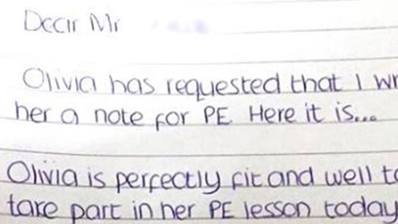 Dear Mr
Olivia has requested that I wr
her a note for PE Here it is...
Olivia is perfectly fit and well to
take part in her PE lesson today